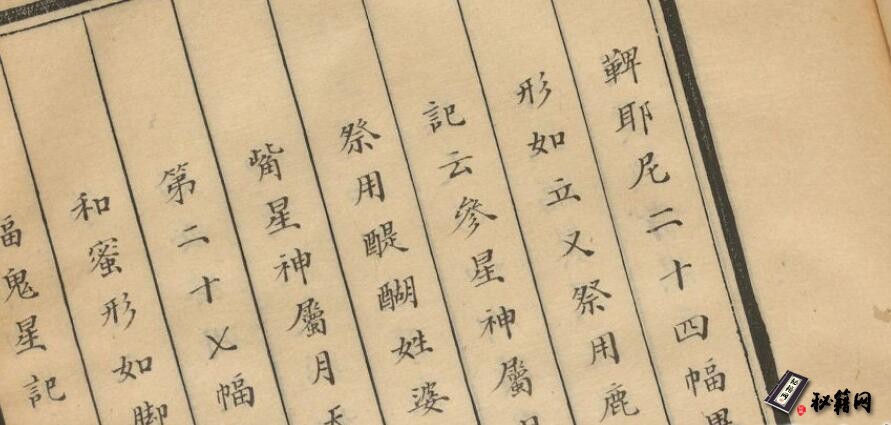 鞞耶尼二十四幅畢
形如立叉祭用鹿
記云參星神屬日
祭用醍醐姓婆
觜星神屬月天
第二十七幅
和蜜形如脚
幅鬼星記
秘籍网